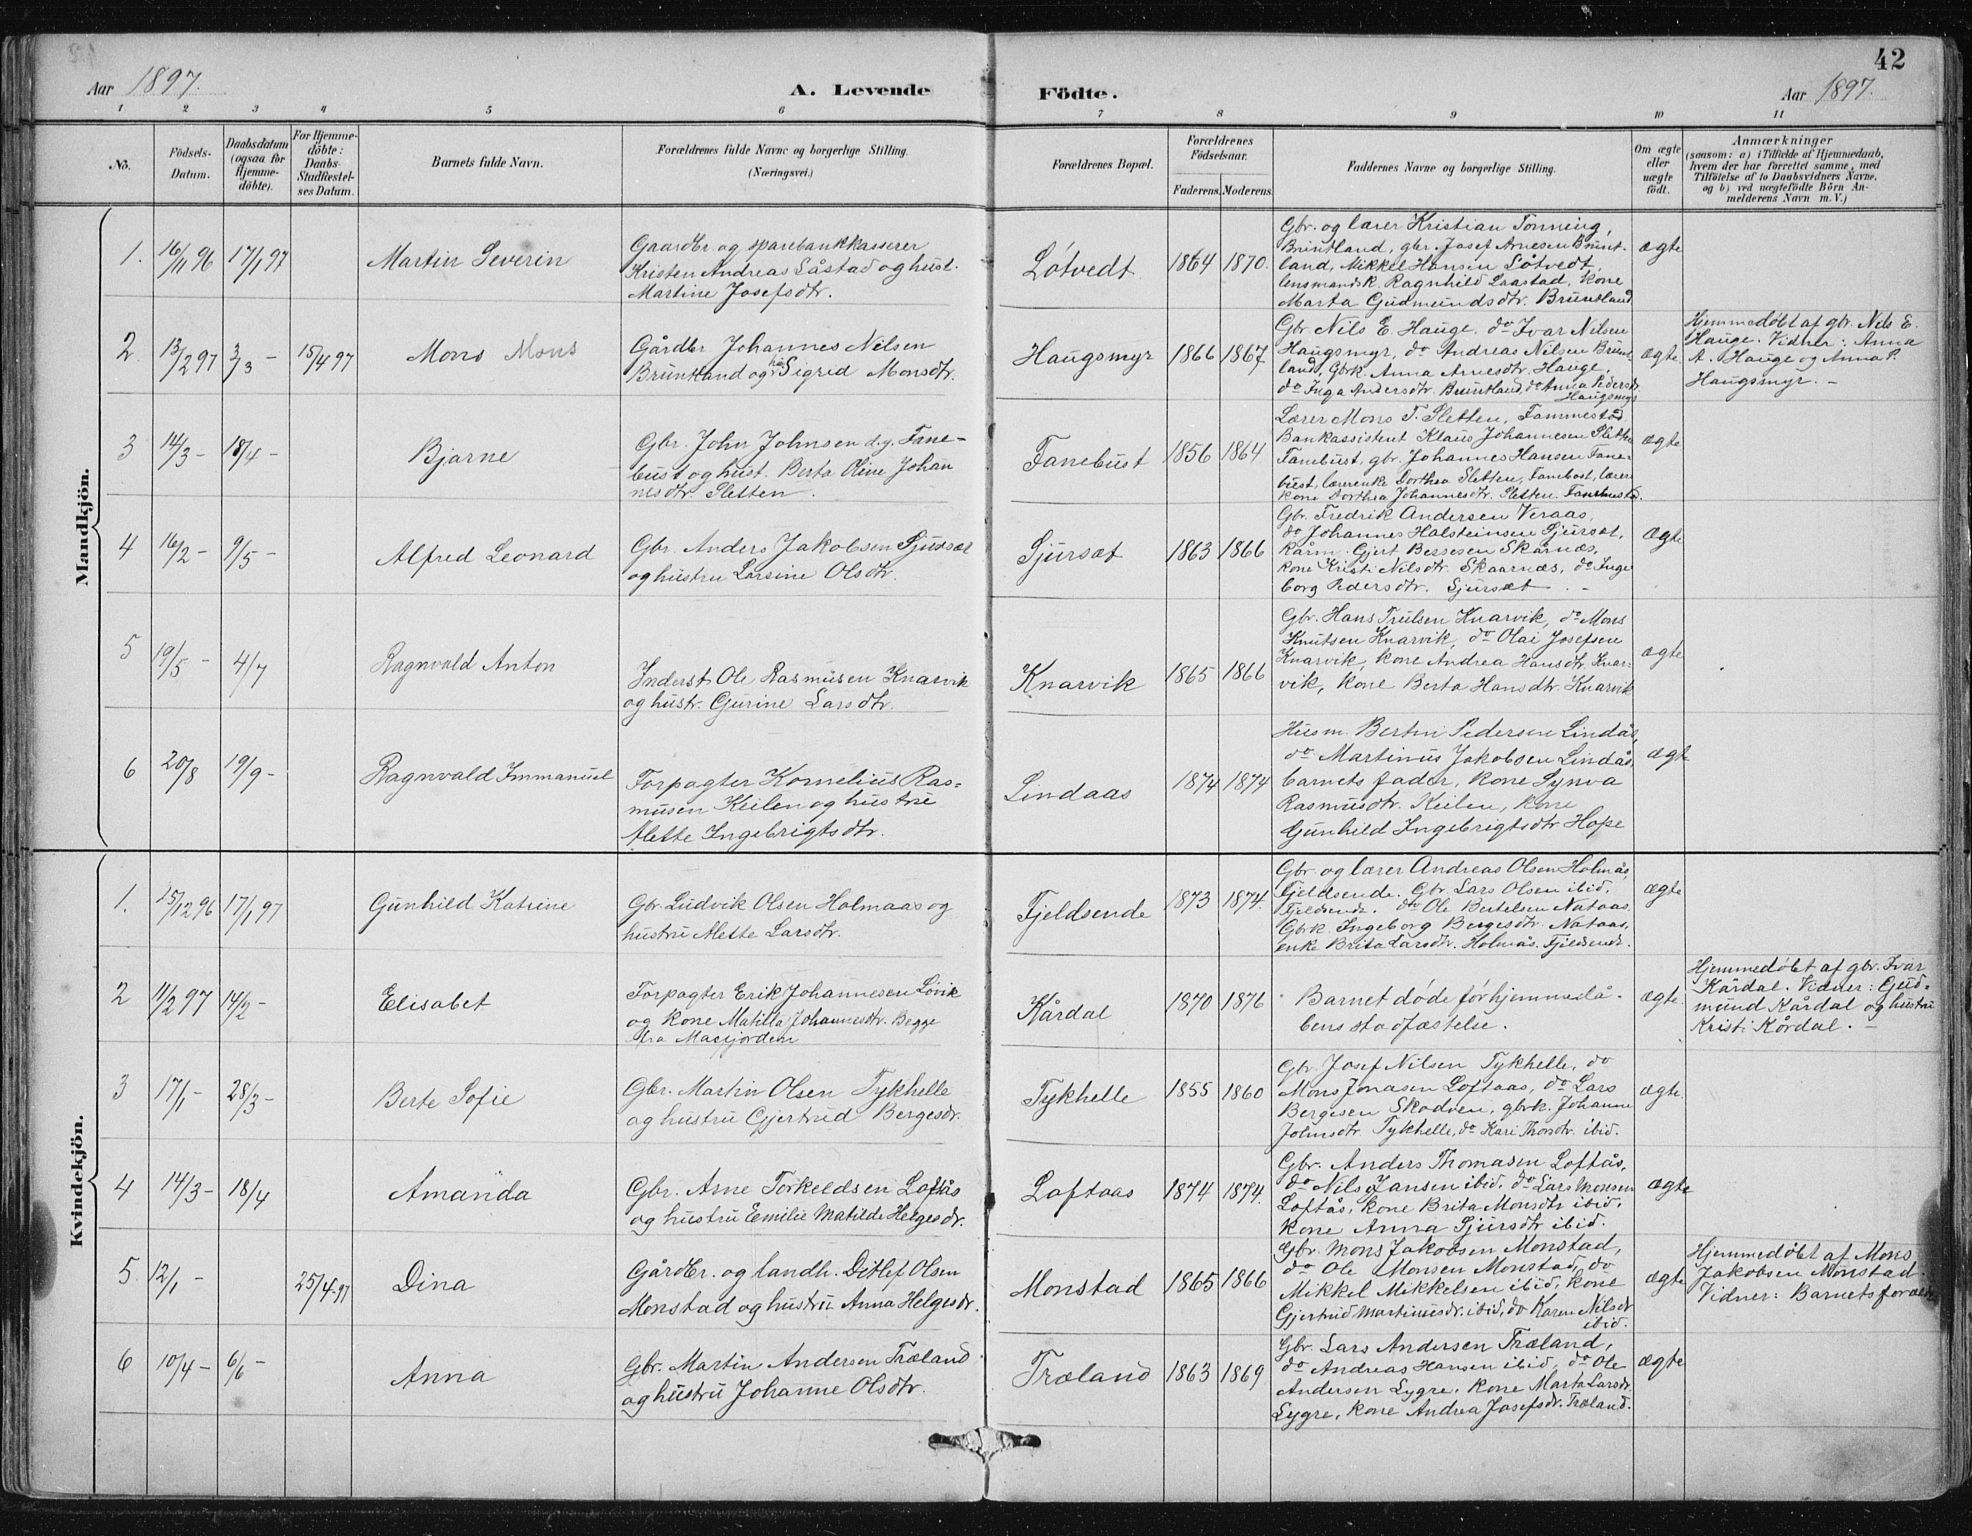 42
Aar 1897.
A. Levende Födte.
Aar 1897.
1 2 3 4 5 6 7 8 9 10 11
No.
Födsels-
Datum.
Daabsdatum
(ogsaa for
Hjemme-
döbte).
For Hjemme-
döbte:
Daabs-
Stadfæstel-
ses Datum.
Barnets fulde Navn.
Forældrenes fulde Navne og borgerlige Stilling.
(Næringsvei.)
Forældrenes Bopæl.
Forældrenes
Födselsaar.
Faderens. Moderens.
Faddernes Navne og borgerlige Stilling.
Om ægte
eller
uægte
födt.
Anmærkninger
(saasom: a) i Tilfælde af Hjemmedaab,
hvem der har forrettet samme, med
Tilföielse af to Daabsvidners Navne,
og b) ved uægtefödte Börn An-
melderens Navn m. V.)
Mandkjön.
1. 16/11 96 17/1 97
Martin Severin
Gaardbr og sparebankkasserer
Kristen Andreas Låstad og hust.
Martine Josefsdtr.
Løtvedt
1864 1870.
Gbr. og lærer Kristian Tonning,
Bruntland, gbr. Josef Arnesen Brunt-
land, Mikkel Hansen Løtvedt,
lensmandsk. Ragnhild Laastad, kone
Marta Gudmundsdtr. Bruntland
ægte
2. 13/2 97 3/3 - 15/4 97
Mons Mons
Gårdbr Johannes Nilsen
Bruntland og h. Sigrid Monsdtr.
Haugsmyr
1866 1867.
Gbr Nils E. Hauge. do Ivar Nilsen
Haugsmyr, do Andreas Nilsen Brunt
land, Gbrk. Anna Arnesdtr. Hauge,
do Inga Andersdtr. Bruntland do Anna Pedersdtr
Haugsmyr
ægte
Hjemmedøbt af gbr. Nils E.
Hauge. Vidner: Anna
A. Hauge og Anna P.
Haugsmyr. -
3 14/3 - 18/4 -
Bjarne
Gbr. John Johnsen d.y. Fane-
bust og hust. Berta Oline Johan
nesdtr. Sletten.
Fanebust
1856 1864
Lærer Mons T. Sletten,
Bankassistent Klaus Johannesen Slette
Fanebust, gbr. Johannes Hansen Fane-
bust, lærerenke Dorthea Sletten, Fanebost, lærer
kone Dorthea Johannesdtr. Sletten.
ægte
4 16/2 - 9/5 -
Alfred Leonard
Gbr. Anders Jakobsen Sjursæt
og hustru Larsine Olsdtr.
Sjursæt
1863 1866
Gbr. Fredrik Andersen Veraas,
do Johannes Halsteinsen Sjursæt,
Kårm. Gjert Bessesen Skarnæs,
kone Kristi Nilsdtr. Skaarnæs, do Inge
borg Pedersdtr. Sjursæt -
Ægte
5 19/5 - 4/7
Ragnvald Anton
Inderst Ole Rasmusen Knarvik
og hustr. Gurine Larsdtr.
Knarvik
1865 1866
Gbr. Hans Trulsen Knarvik, do Mons
Knutsen Knarvik, do Olai Josefsen
Knarvik, kone Andrea Hansdtr. Knar-
vik, kone Berta Hansdtr. Knarvik
ægte
6 20/8 19/9 -
Ragnvald Immanuel
Forpagter Kornelius Ras-
musen Keilen og hustru
Alette Ingebrigtsdtr.
Lindaas
1874 1874
Husm. Bertin Pedersen Lindås,
do Martinus Jakobsen Lindås
barnets fader, kone Synva
Rasmusdtr. Keilen, kone
Gunhild Ingebrigtsdtr Hope
ægte
Kvindekjön.
1. 15/12 96 17/1 97
Gunhild Katrine
Gbr. Ludvik Olsen Holmaas og
hustru Alette Larsdtr.
Fjeldsende
1873 1874.
Gbr og lærer Andreas Olsen Holmås,
Fjeldsende. Gbr. Lars Olsen ibid,
Fjeldsende. do Ole Bertelsen Nataas
Gbrk Ingeborg Bergesdtr. Nataas,
enke Brita Larsdtr. Holmås. Fjeldsende.
ægte
2 11/2 97 14/2 -
Elisabet
Forpagter Erik Johannesen Løvik
og kone Matilla Johannesdtr. Begge
fra Masfjorden
Kårdal
1870 1876
Barnet døde før hjemmedå-
bens stadfæstelse.
ægte.
Hjemmedøbt af gbr. Ivar
Kårdal. Vidner: Gud-
mund Kårdal og hustru
Kristi Kårdal. -
3 17/1 - 28/3 -
Berte Sofie
Gbr. Martin Olsen Tykhelle
og hustru Gjertrud Bergesdr.
Tykhelle
1855 1860
Gbr. Josef Nilsen Tykhelle, do
Mons Jonasen Loftaas, do Lars
Bergesen Skodven, gbrk. Johanne
Johnsdtr Tykhelle, do Kari Thorsdtr. ibid.
ægte.
4 14/3 - 18/4
Amanda
Gbr. Arne Torkeldsen Loftås
og hustru Emilie Matilde Helgesdr.
Loftaas
1874 1874.
Gbr. Anders Thomasen Loftås,
do Nils Jansen ibid. do Lars Monsen
Loftås, kone Brita Monsdtr ibid.
kone Anna Sjursdtr ibid.
ægte
5. 12/1 - 25/4 97
Dina
Gårdbr. og landh. Ditlef Olsen
Monstad og hustru Anna Helgesdr.
Monstad
1865 1866
Gbr. Mons Jakobsen Monstad,
do Ole Monsen Monstad, do
Mikkel Mikkelsen ibid, kone
Gjertrud Martinusdr. ibid, do Karen Nilsdr
ibid.
ægte
Hjemmedøbt af Mons
Jakobsen Monstad.
Vidner: Barnets foræld
6 10/4 - 6/6 -
Anna
Gbr. Martin Andersen Træland
og hustru Johanne Olsdtr.
Træland
1863 1869
Gbr. Lars Andersen Træland,
do Andreas Hansen ibid, do Ole
Andersen Lygre, kone Marta Larsdr.
Lygre, kone Andrea Josefsdr. Træland.
ægte